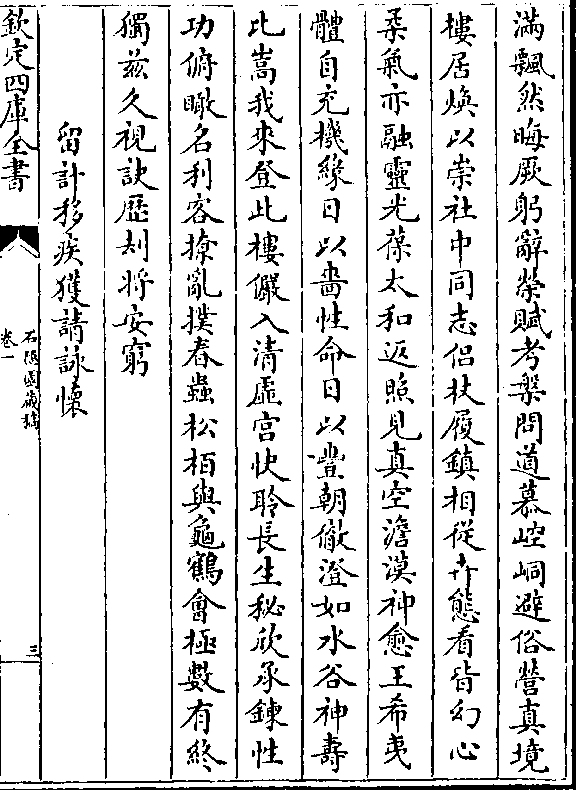 滿飄然晦厥躬辭榮賦考槃問道慕崆峒避俗營真境
樓居煥以崇社中同志侶杖履鎮相從卉態看皆幻心
柔氣亦融靈光葆太和返照見真空澹漠神愈王希夷
體自充機緣日以嗇性命日以豐朝徹澄如水谷神壽
比嵩我來登此樓儼入清虛宫快聆長生秘欣承鍊性
功俯瞰名利客撩亂撲春蟲松栢與龜鶴會極數有終
獨兹久視訣歴刼將安窮
留計移疾獲請詠懷
欽定四庫全書
石隱園藏稿
卷一
三